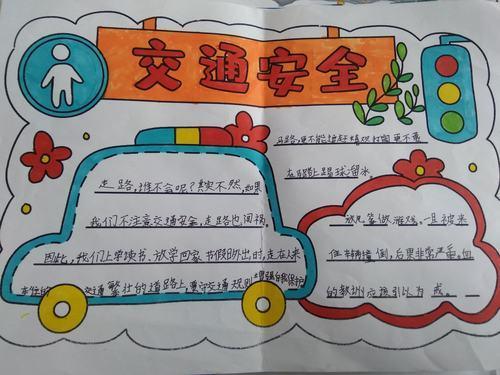 交通安全
走路,谁不会呢?其实不然,如果
我们不注意交通安全,走路也闯祸。
因此,我们上学读书、放学回家、节假日外出时,走在人来
车往的交通繁壮的道路上,遵守交通规则增强自我保护
马路,更不能追赶嬉戏打闹更不要
在马路上踢球溜冰
放风筝做游戏。一旦被来
往车辆撞倒,后果非常严重。血
的教训应该引以为 戒。